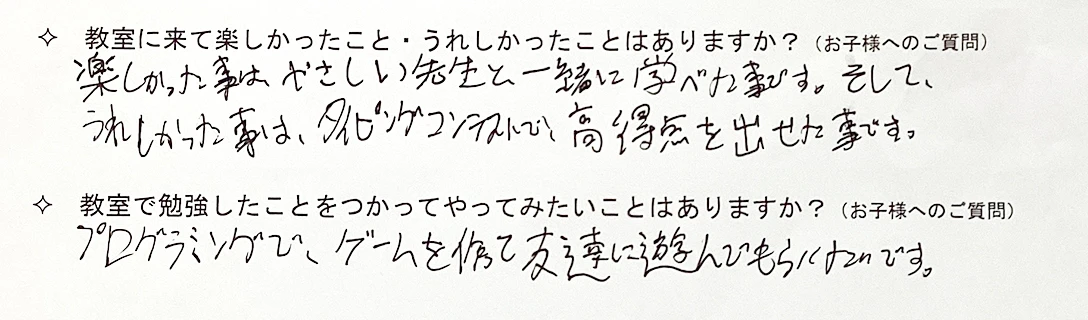 ✧ 教室に来て楽しかったこと・うれしかったことはありますか？（お子様へのご質問）
楽しかった事は、やさしい先生と、一緒に学べた事です。そして、
うれしかった事は、タイピングコンテストで、高得点を出せた事です。
✧ 教室で勉強したことをつかってやってみたいことはありますか？（お子様へのご質問）
プログラミングで、ゲームを作って友達に遊んでもらいたいです。